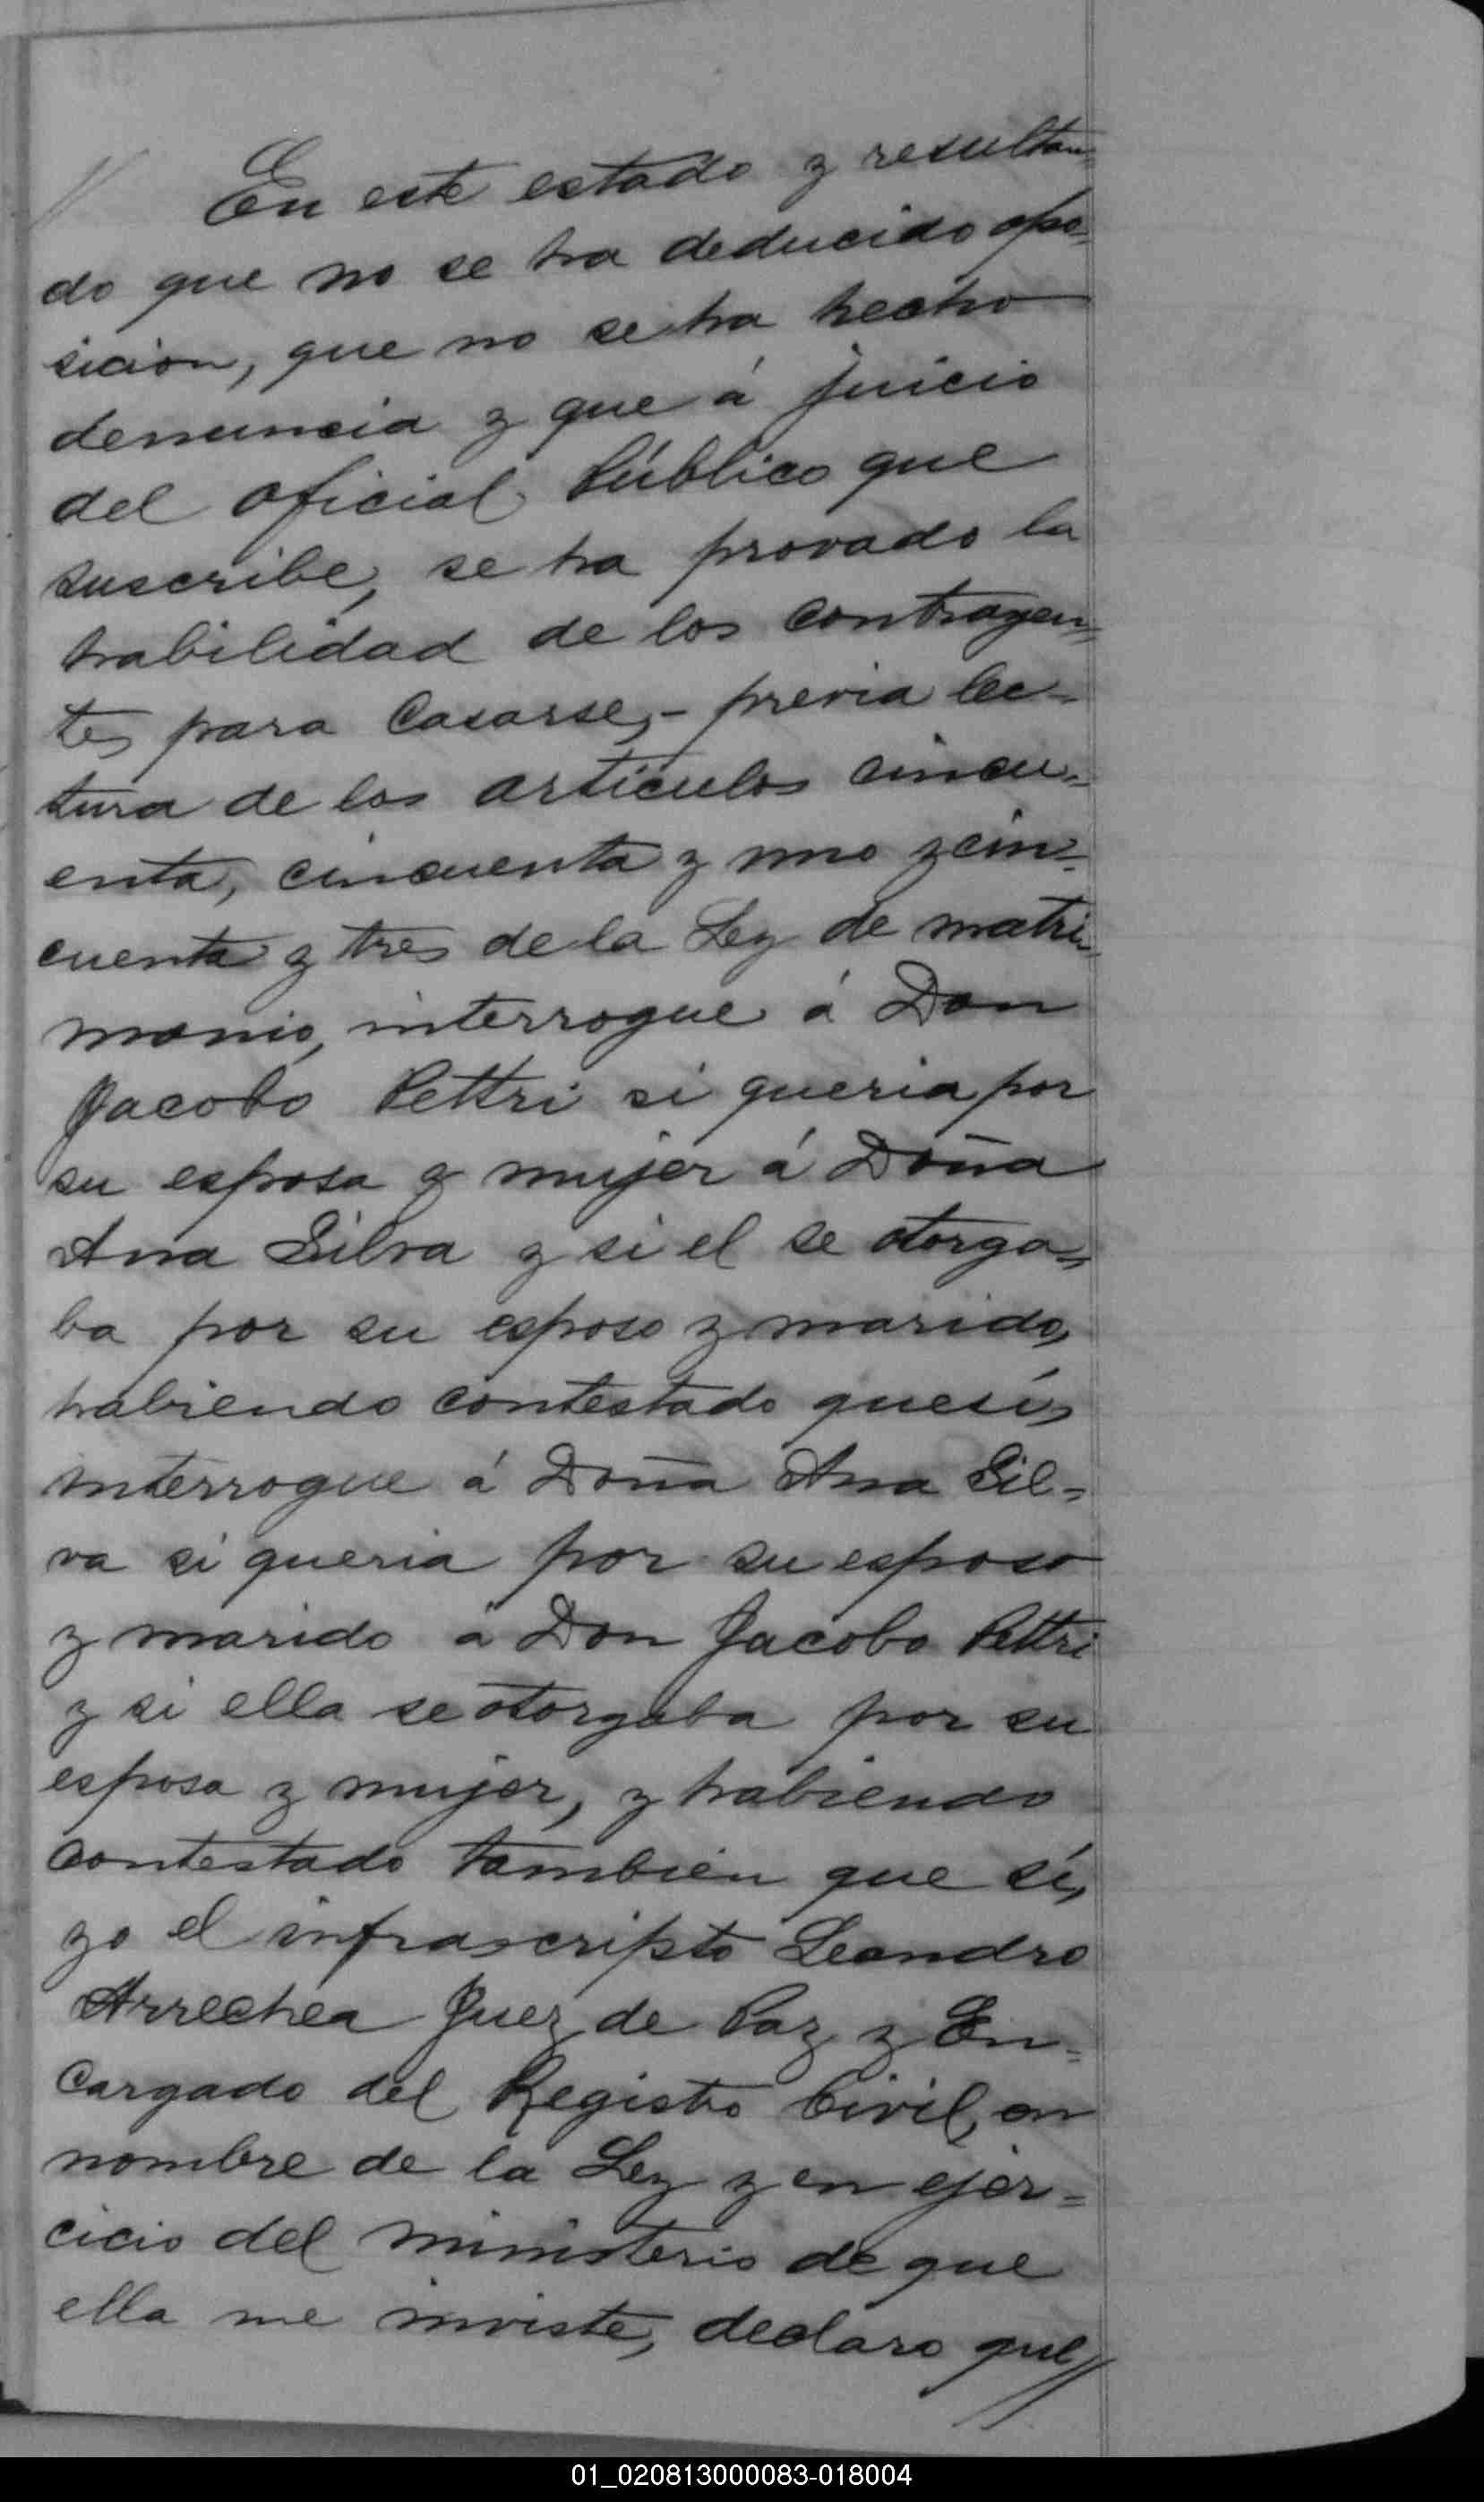 // En este estado y resultan=
do que no se ha deducido opo=
sicion, que no se ha hecho
denuncia y que á juicio
del oficial Público que
suscribe, se ha provado la
habilidad de los contrayen=
tes para Casarse,- previa lec=
tura de los artículos cincu=
enta, cincuenta y uno y cin=
cuenta y tres de la Ley de matri=
monio, interrogue á Don
Jacobo Pettri si queria por
su esposa y mujer á Doña
Ana Silva y si el se otorga=
ba por su esposo y marido,
habiendo contestado que sí,
interrogue á Doña Ana Sil=
va si queria por su esposo
y marido á Don Jacobo Pettri
y si ella se otorgaba por su
esposa y mujer, y habiendo
contestado tambien que sí,
yo el infrascripto Leandro
Arrechea Juez de Paz y En=
cargado del Registro Civil, en
nombre de la Ley y en ejer=
cicio del ministerio de que
ella me inviste, declaro que//
01_020813000083-018004